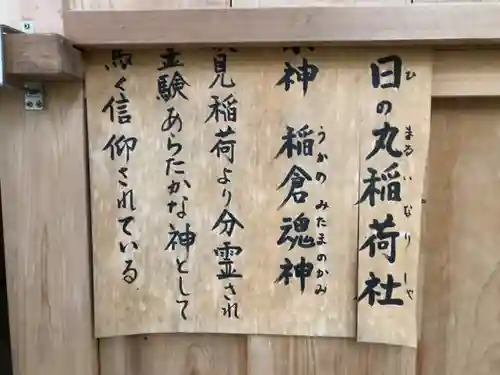 日の丸稲荷社
ひ まるいなりしゃ
祭神 稲倉魂神
うかのみたまのかみ
伏見稲荷より分霊され
霊験あらたかな神として
厚く信仰されている